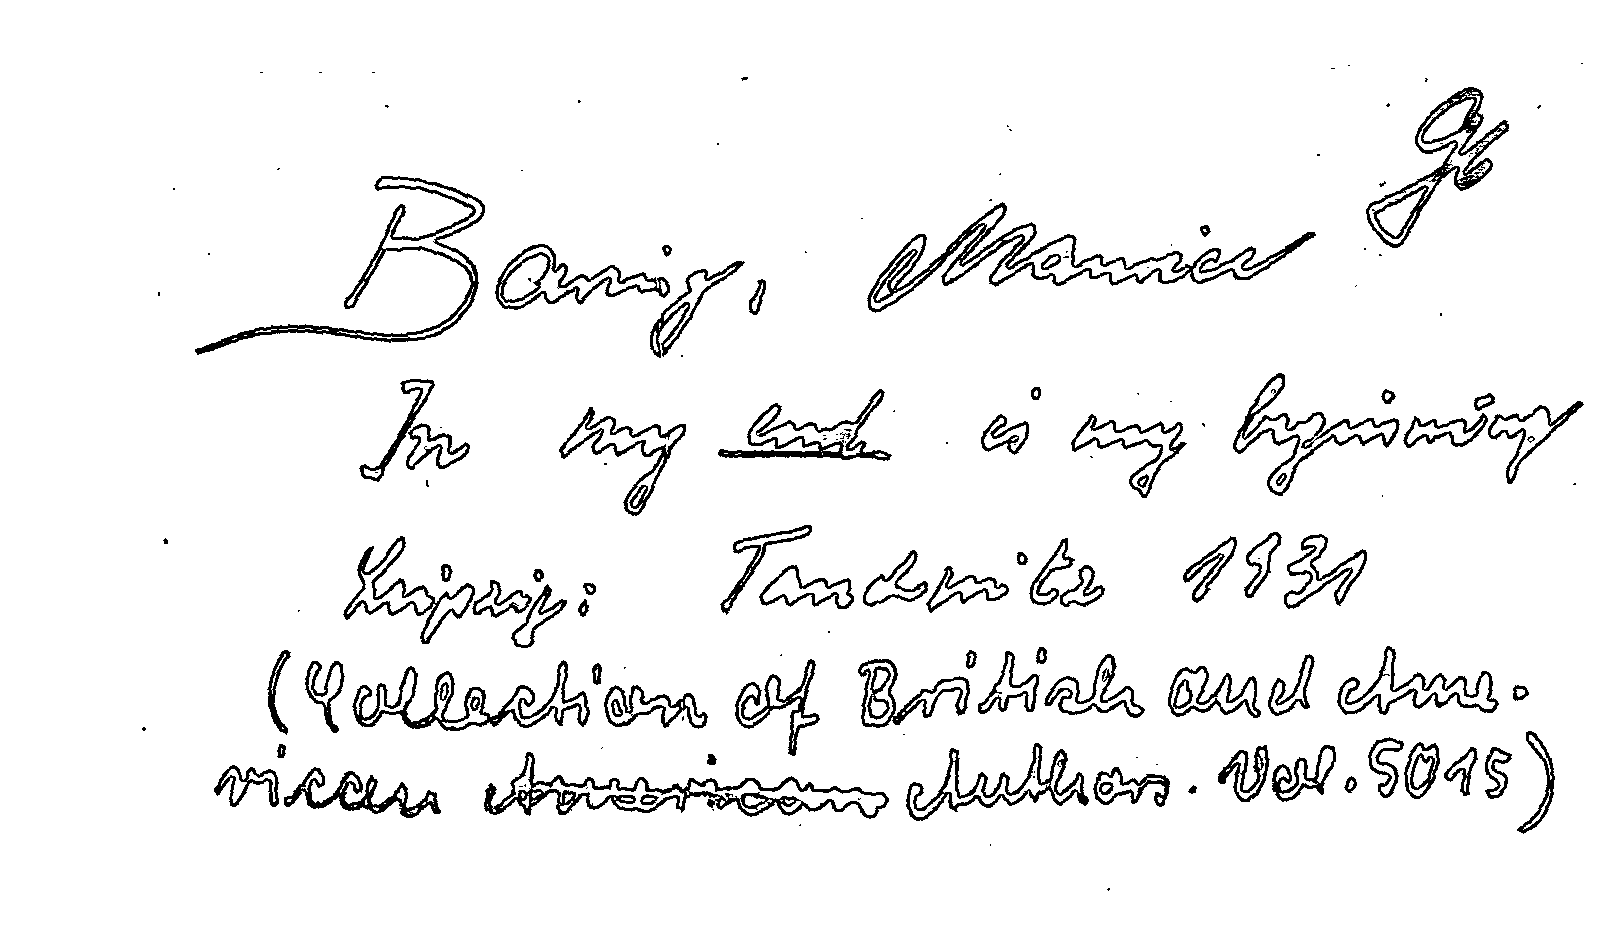 Baring, Maurice
In my end is my beginning
Leipzig: Tauchnitz 1931
(Collection of British and Ame-
rican American Authors. Vol. 5015)